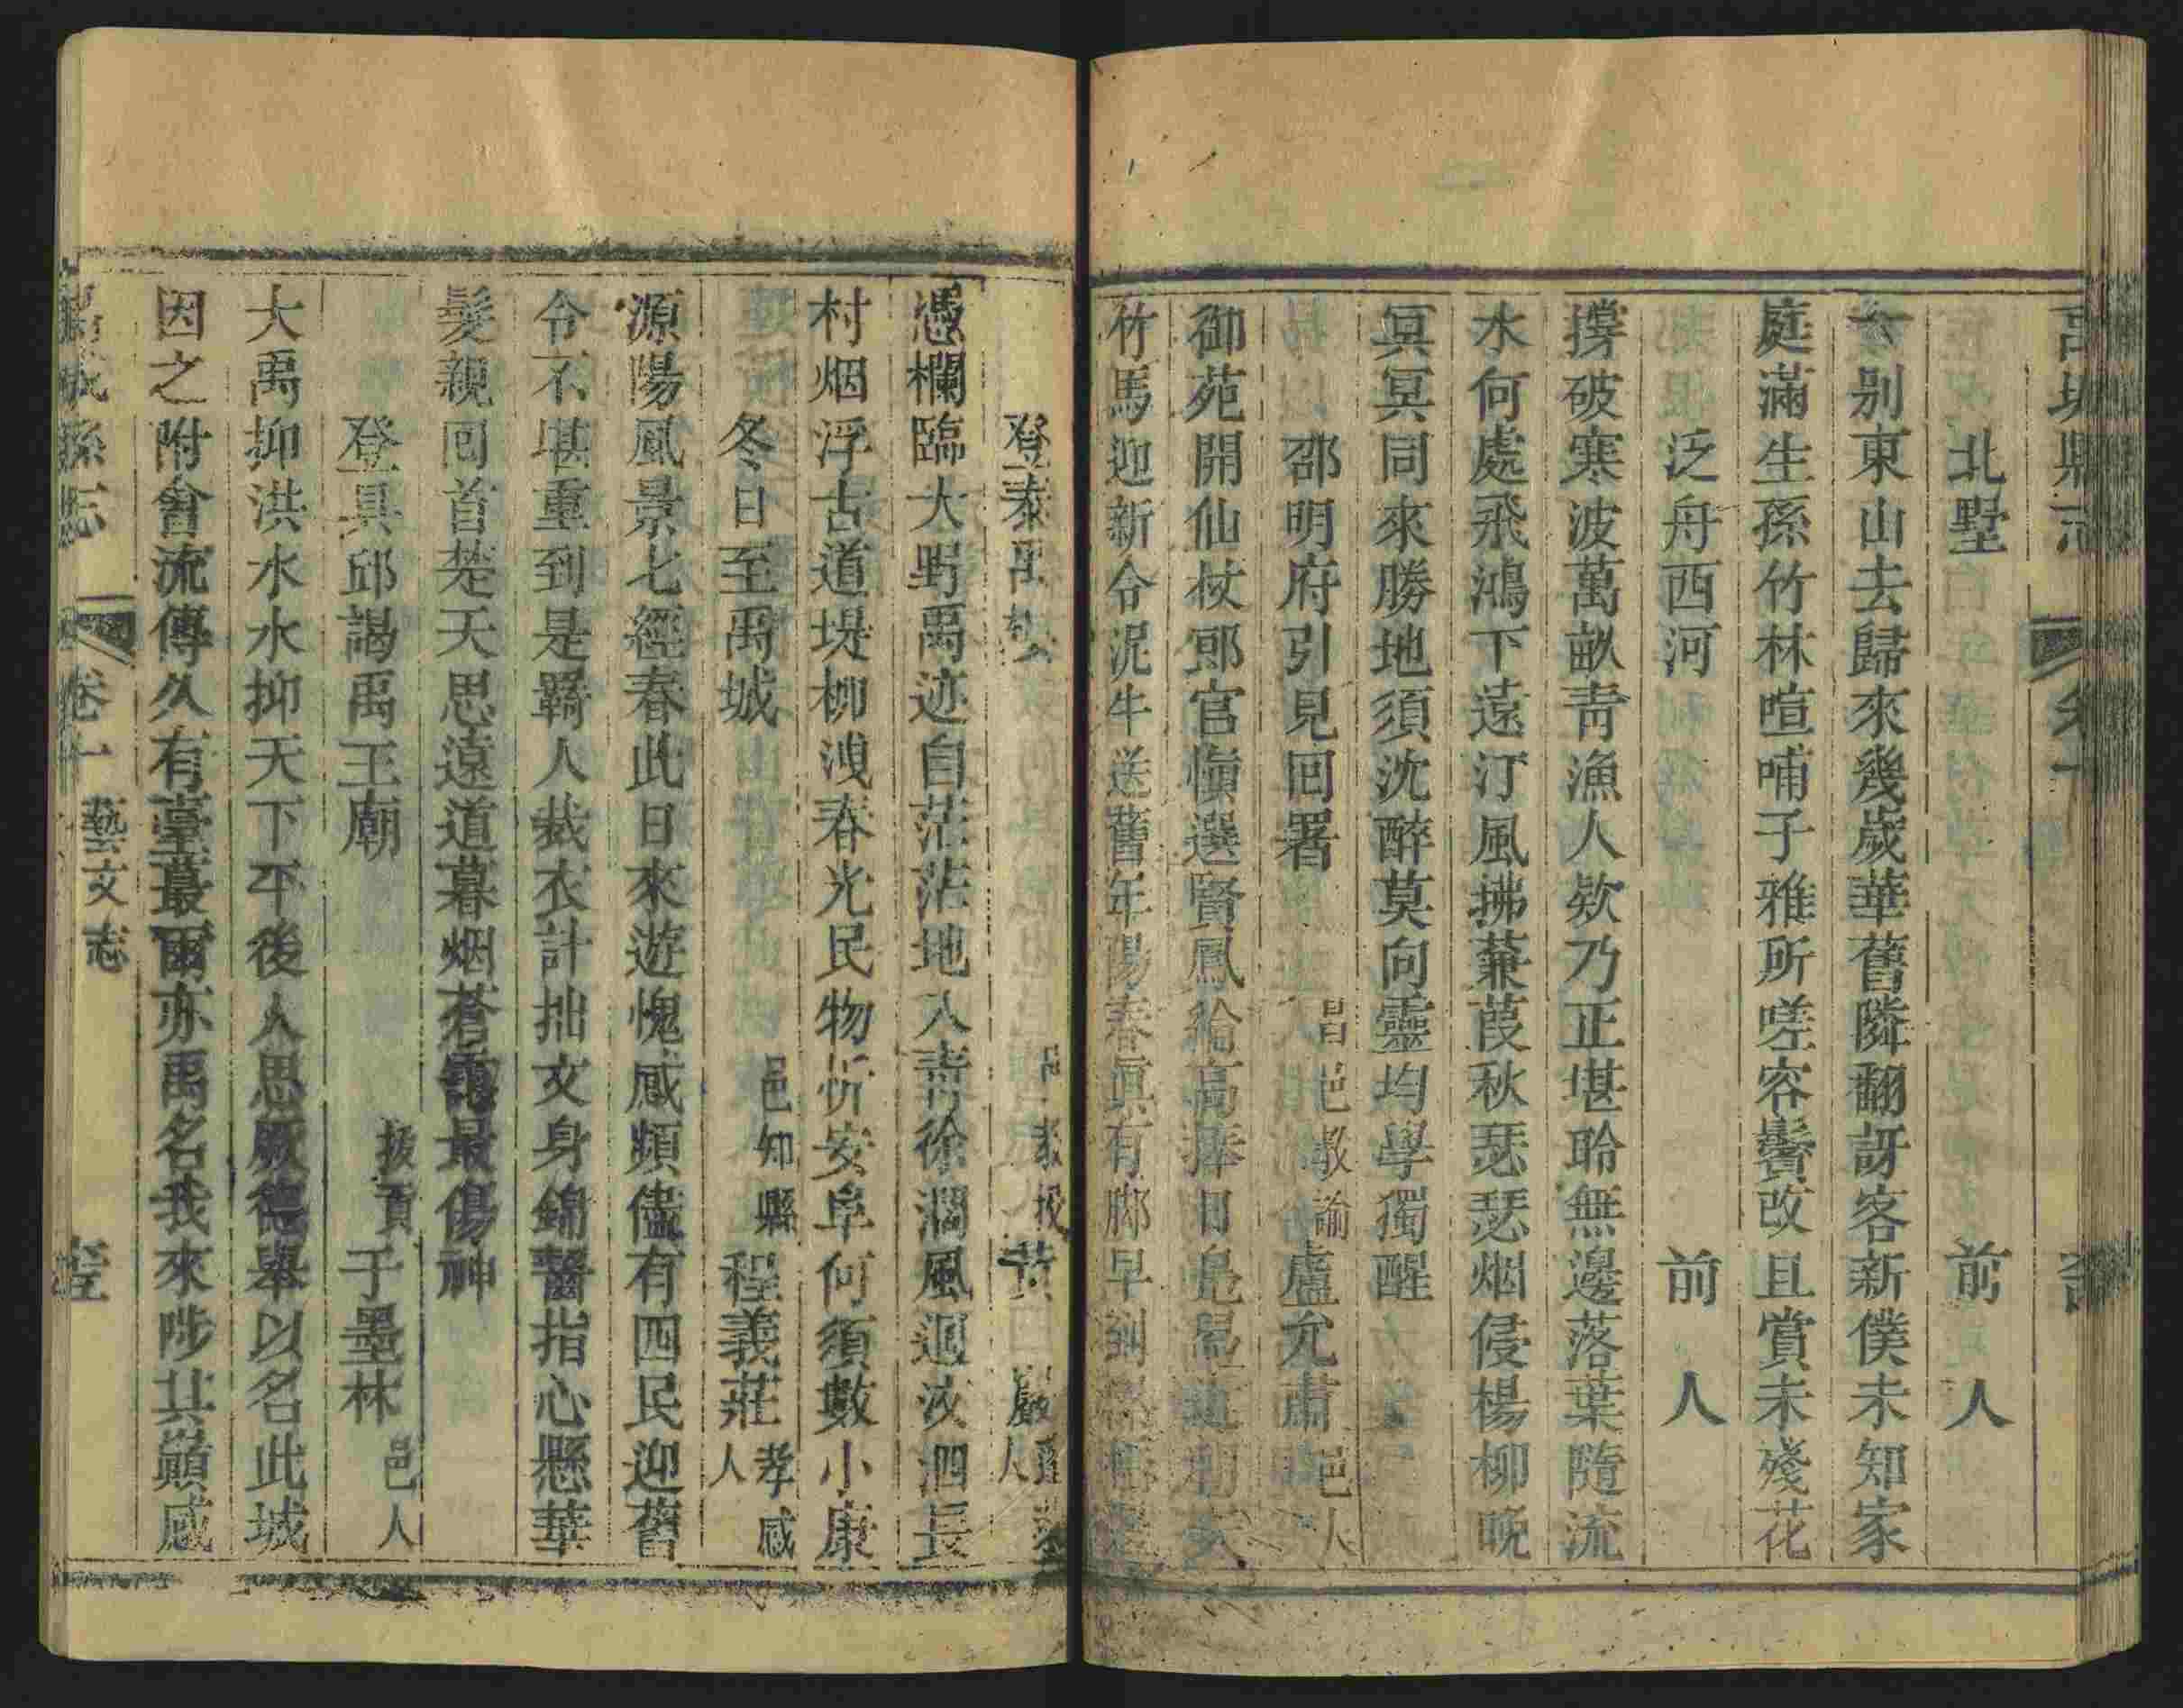 禹城縣志
卷十
北墅
前人
一别東山去歸來幾歲華舊隣翻訝客新僕未知家
庭滿生孫竹林喧哺子雅所嗟容鬢改且賞未殘花
泛舟西河
前人
撐破寒波萬畝青漁人欸乃正堪聆無邊落葉隨流
水何處飛鴻下遠汀風拂蒹葭秋瑟瑟烟侵楊柳晚
冥冥同來勝地須沈醉莫向靈均學獨醒
邵明府引見回署
昌邑教諭盧允肅邑人
御苑開仙杖郎官愼選賢鳳綸高捧日
竹馬迎新令泥牛送舊年陽春眞有脚早到
登泰
黃巖
憑欄臨大野禹迹自茫茫地入青徐濶風迴汶泗長
村烟浮古道堤柳洩春光民物忻安阜何須數小康
冬日至禹城
邑知縣程義莊孝感人
源陽風景七經春此日來遊愧感頻儘有四民迎舊
令不堪重到是羇人裁衣計拙文身錦醫指心懸華
髮親回首楚天思遠道暮烟蒼靄最傷神
登具邱謁禹王廟
拔貢于墨林邑人
大禹抑洪水水抑天下平後人思厥德舉以名此城
因之附會流傳久有臺蕞爾亦禹名我來陟其巔感
禹城縣志
卷十
藝文志